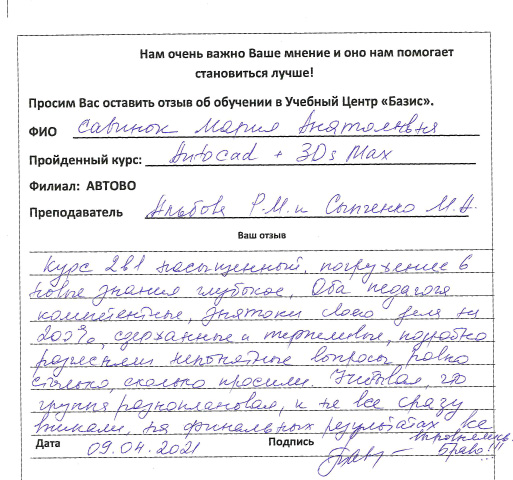 Нам очень важно Ваше мнение и оно нам помогает
становиться лучше!
Просим Вас оставить отзыв об обучении в Учебный Центр «Базис».
ФИО Савинок Мария Анатольевна
Пройденный курс: Autocad + 3Ds Max
Филиал: АВТОВО
Преподаватель Альбова Р.М. и Сытченко М.А.
Ваш отзыв
Курс 2в1 насыщенный, погружение в
новые знания глубокое. Оба педагога
компетентные, знатоки своего дела на
200%, сдержанные и терпеливые, подробно
разъясняли непонятные вопросы ровно
столько, сколько просили. Учитывая, что
группа разноплановая, и не все сразу
вникали, на финальных результатах все
справились.
Браво!!!
Дата 09.04.2021 Подпись